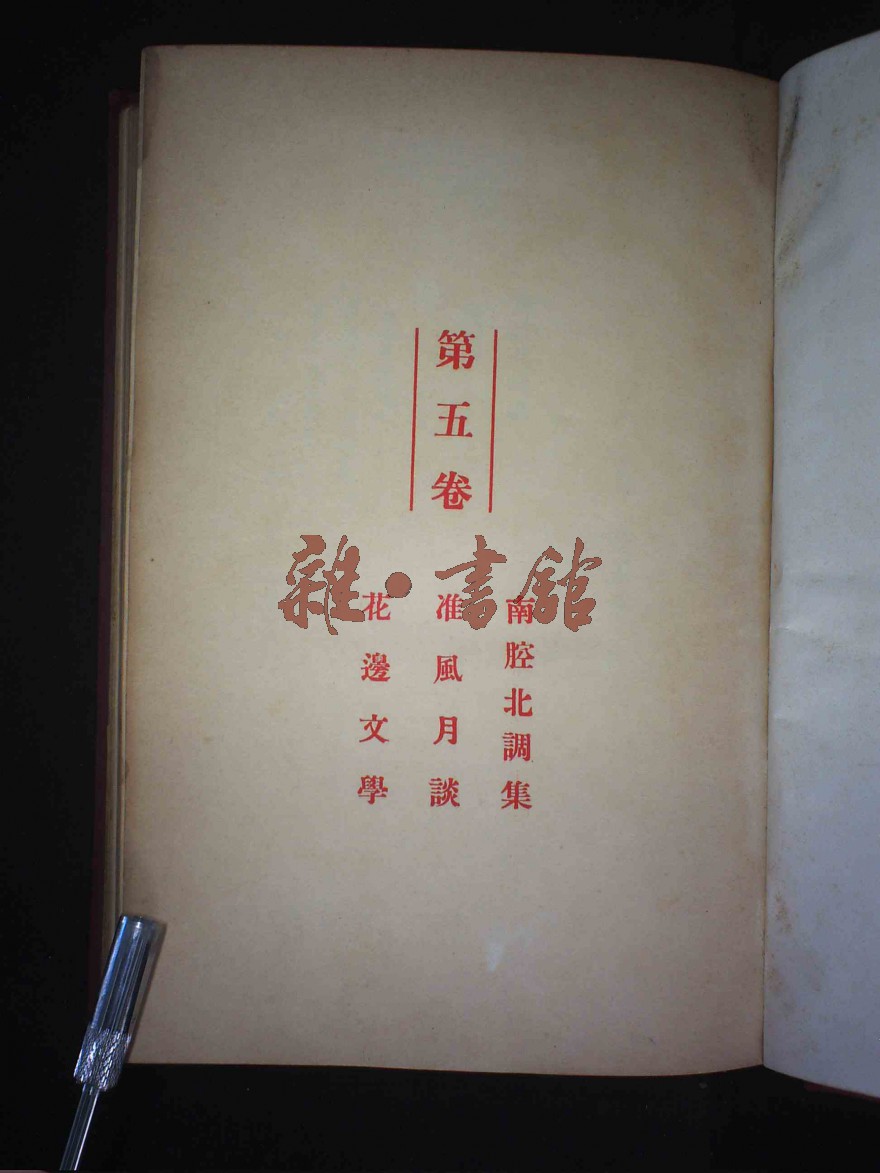 第五卷
南腔北調集
准風月談
花邊文學
雜·書館